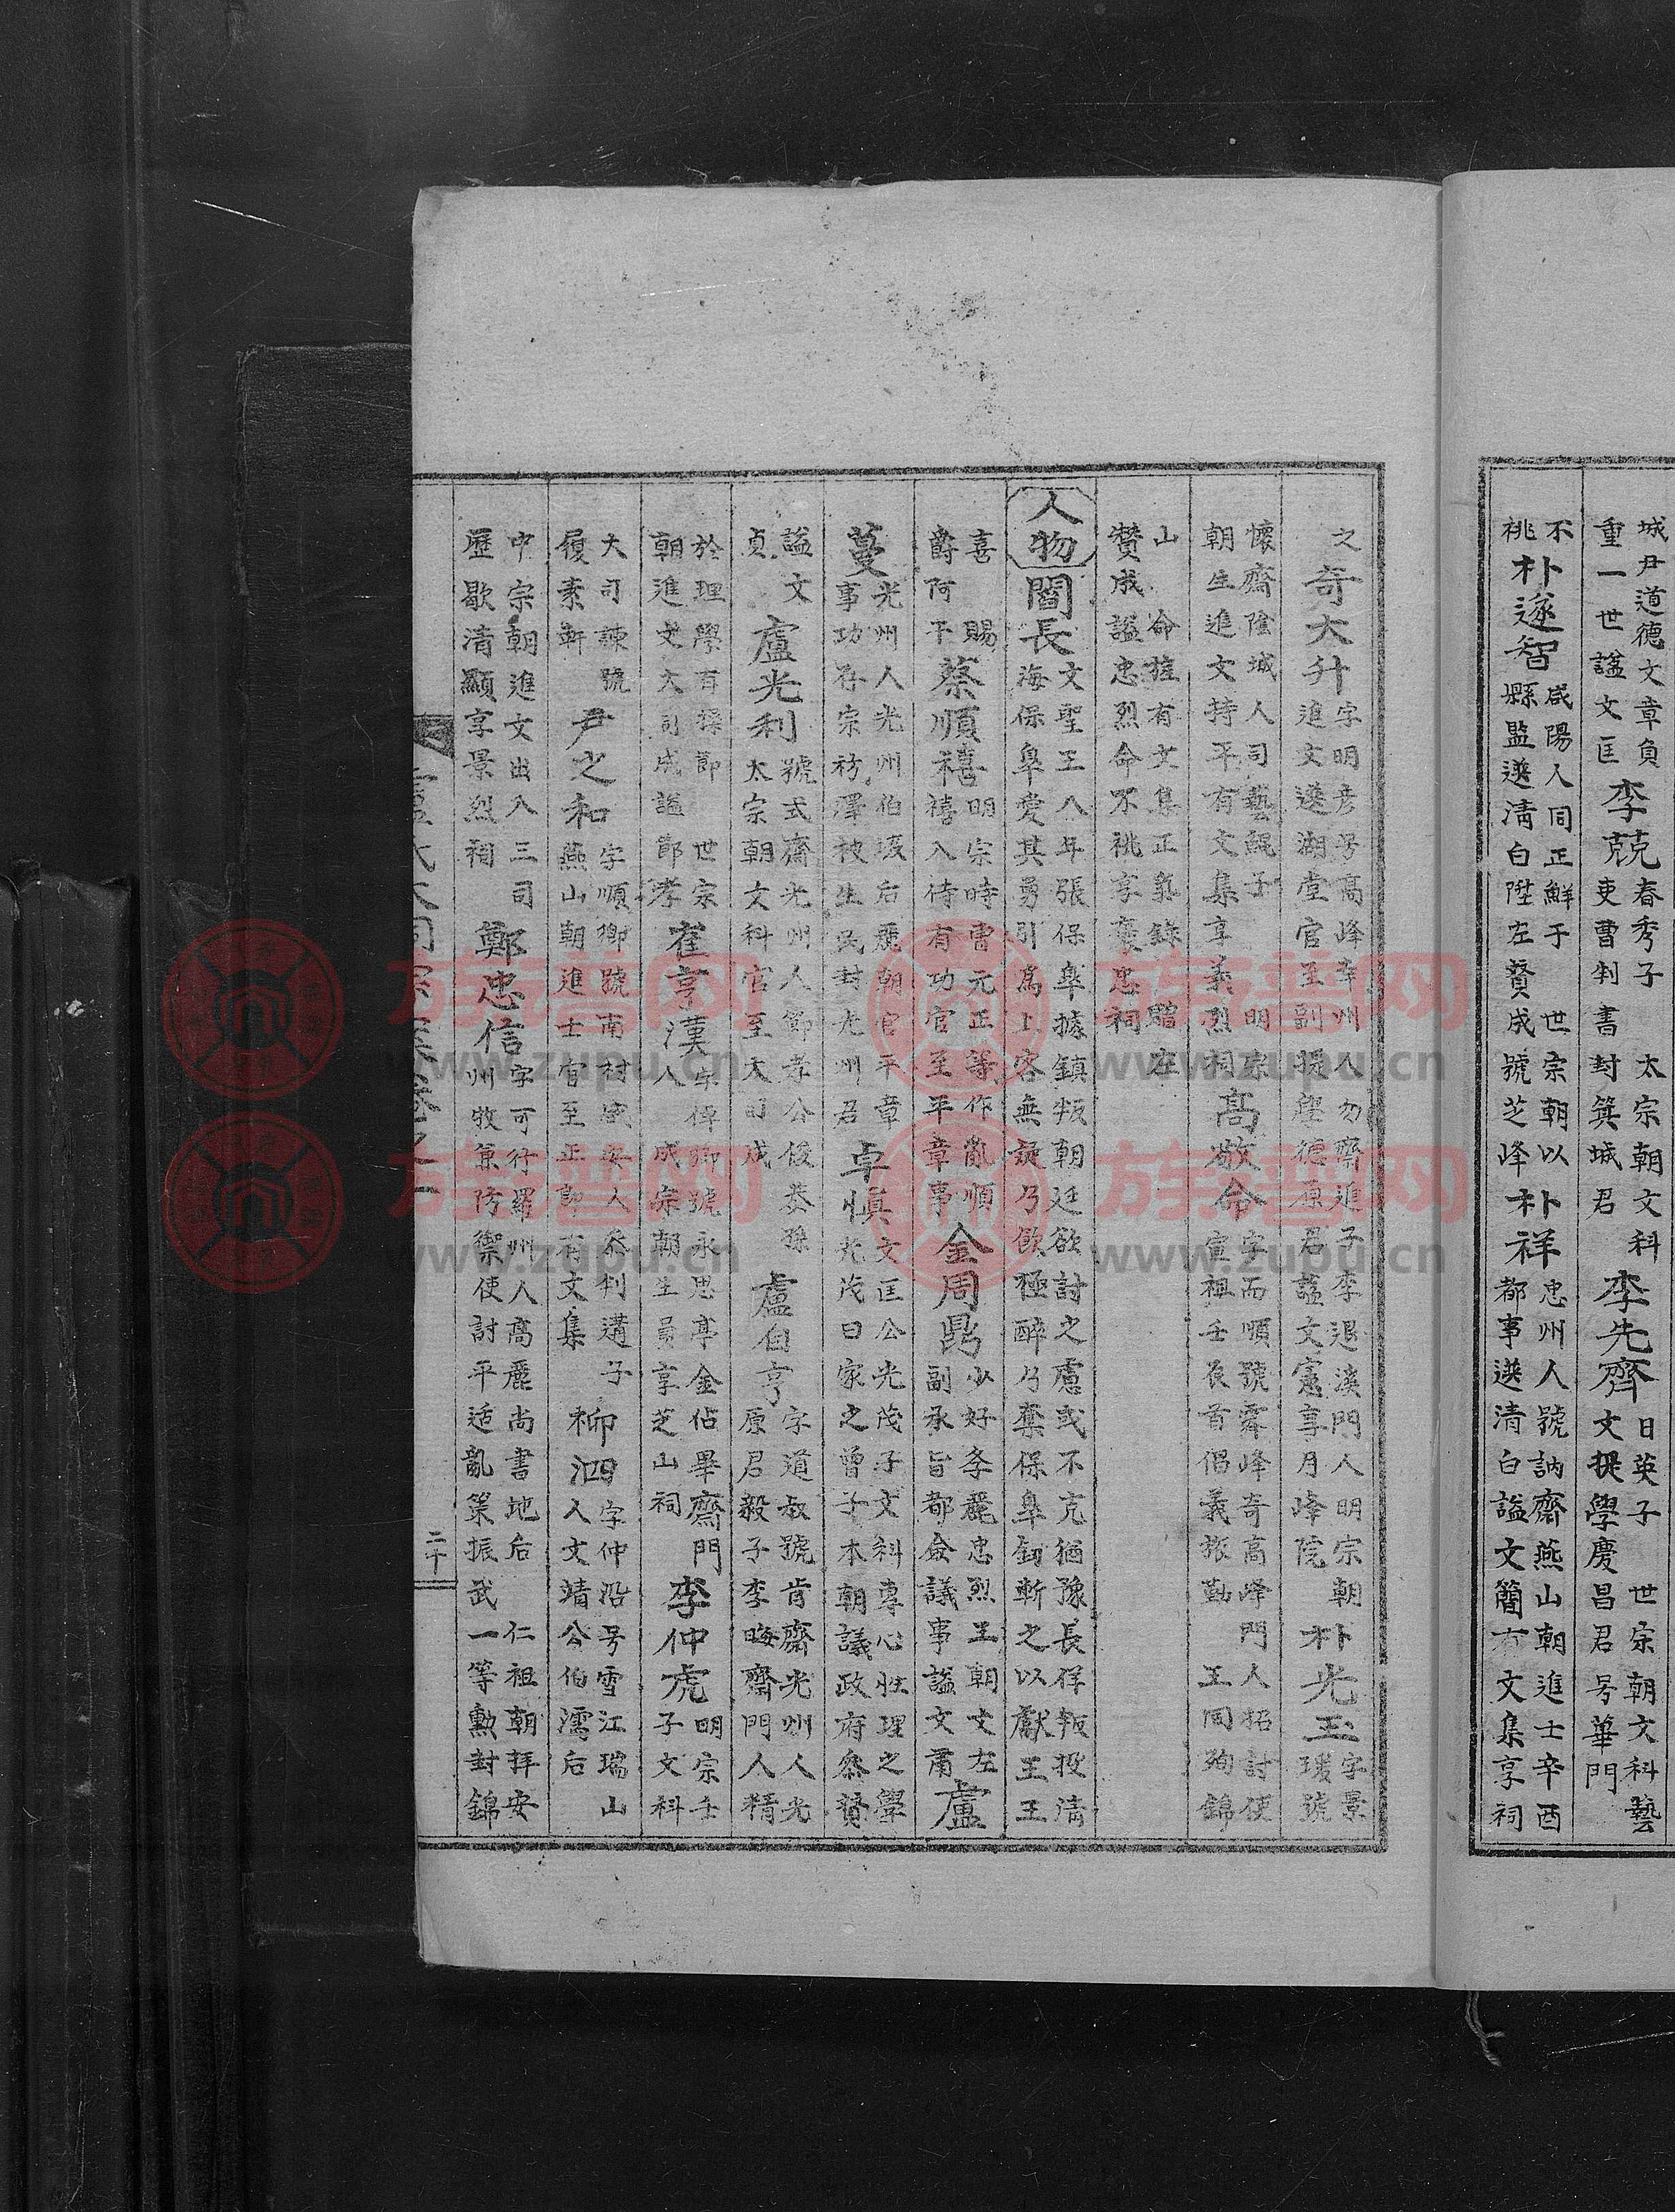 城尹道德文章負
重一世謚文匡
李兢
春秀子 太宗朝文科
吏曹判書封箕城君
李先齊
日英子 世宗朝文科藝
文提學慶昌君号華門
不
祧
朴遂智
咸陽人同正鮮于 世宗朝以
縣監選清白陞左贊成號芝峰
朴祥
忠州人號訥齋燕山朝進士辛酉
都事選清白謚文簡有文集享祠
之
奇大升
字明彦号高峰幸州人勿齋進子李退溪門人明宗朝
進文選湖堂官至副提學德原君謚文憲享月峰院
朴光玉
字景
瑗號
懷齋陰城人司藝鯤子 明宗
朝生進文持平有文集享義烈祠
高敬命
字而順號霽峰奇高峰門人招討使
宣祖壬辰首倡義旅勤 王同殉錦
山 命旌有文集正氣錄 贈左
贊成謚忠烈命不祧享褒忠祠
人物
閻長
文聖王八年張保皐據鎮叛朝廷欲討之慮或不克猶豫長佯叛投清
海保皐愛其勇引爲上客無疑乃飲極醉乃奪保皐釰斬之以獻王王
喜 賜
爵阿干
蔡順禧
明宗時曺元正等作亂順
禧入侍有功官至平章事
金周鼎
少好學麗忠烈王朝文左
副承旨都僉議事謚文肅
盧
蔓
光州人光州伯垓后麗朝官平章
事功存宗祊澤被生民封光州君
卓愼
文匡公光茂子文科專心性理之學
光茂曰家之曾子本朝議政府參贊
謚文
貞
盧光利
號式齋光州人節孝公俊恭孫
太宗朝文科官至大司成
盧自亨
字道叔號肯齋光州人光
原君毅子李晦齋門人精
於理學有操節 世宗
朝進文大司成謚節孝
崔亨漢
字倬卿號永思亭金佔畢齋門
人 成宗朝生員享芝山祠
李仲虎
明宗壬
子文科
大司諫號
履素軒
尹之和
字順卿號南村咸安人參判遘子
燕山朝進士官至正郎有文集
柳泗
字仲沿号雪江瑞山
人文靖公伯濡后
中宗朝進文出入三司
歷敭清顯享景烈祠
鄭忠信
字可行羅州人高麗尚書地后 仁祖朝拜安
州牧兼防禦使討平适亂策振武一等勳封錦
二十
族譜网
www.zupu.cn
族譜网
www.zupu.cn
族譜网
www.zupu.cn
族譜网
www.zupu.cn